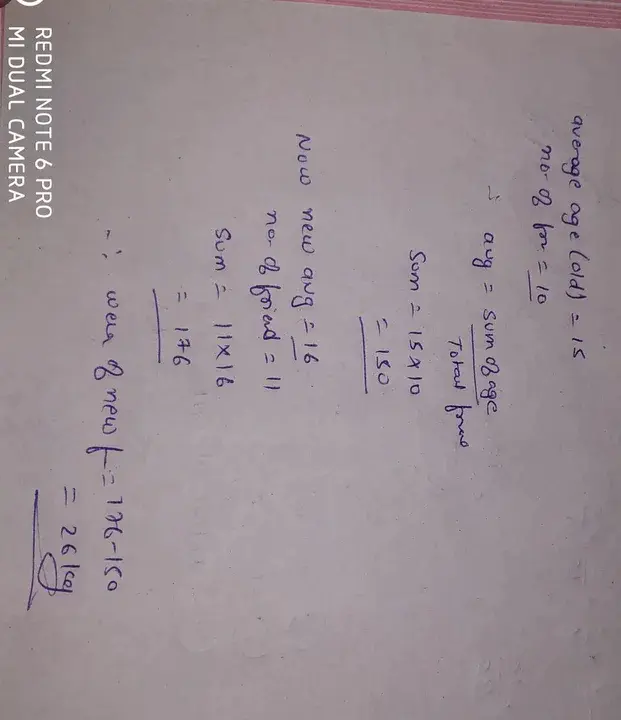 average age (old) = 15
no. of fr = 10
∴ avg = sum of age
Total
Sum = 15 x 10
= 150
Now new avg = 16
no. of friend = 11
Sum = 11 x 16
= 176
∴ of new f = 176 - 150
= 26 kg
REDMI NOTE 6 PRO
MI DUAL CAMERA